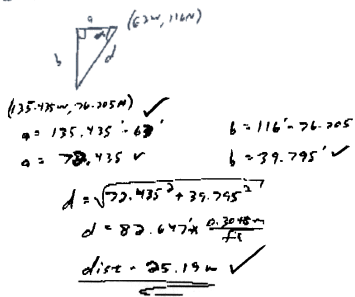 a
(63W, 116N)
α
b
d
(135.435W, 76.205N) ✓
a = 135.435' - 63'
b = 116' - 76.205
a = 72.435 ✓
b = 39.795' ✓
d = √72.435² + 39.795²
d = 82.647' × 0.3048m / ft
dist = 25.19m ✓